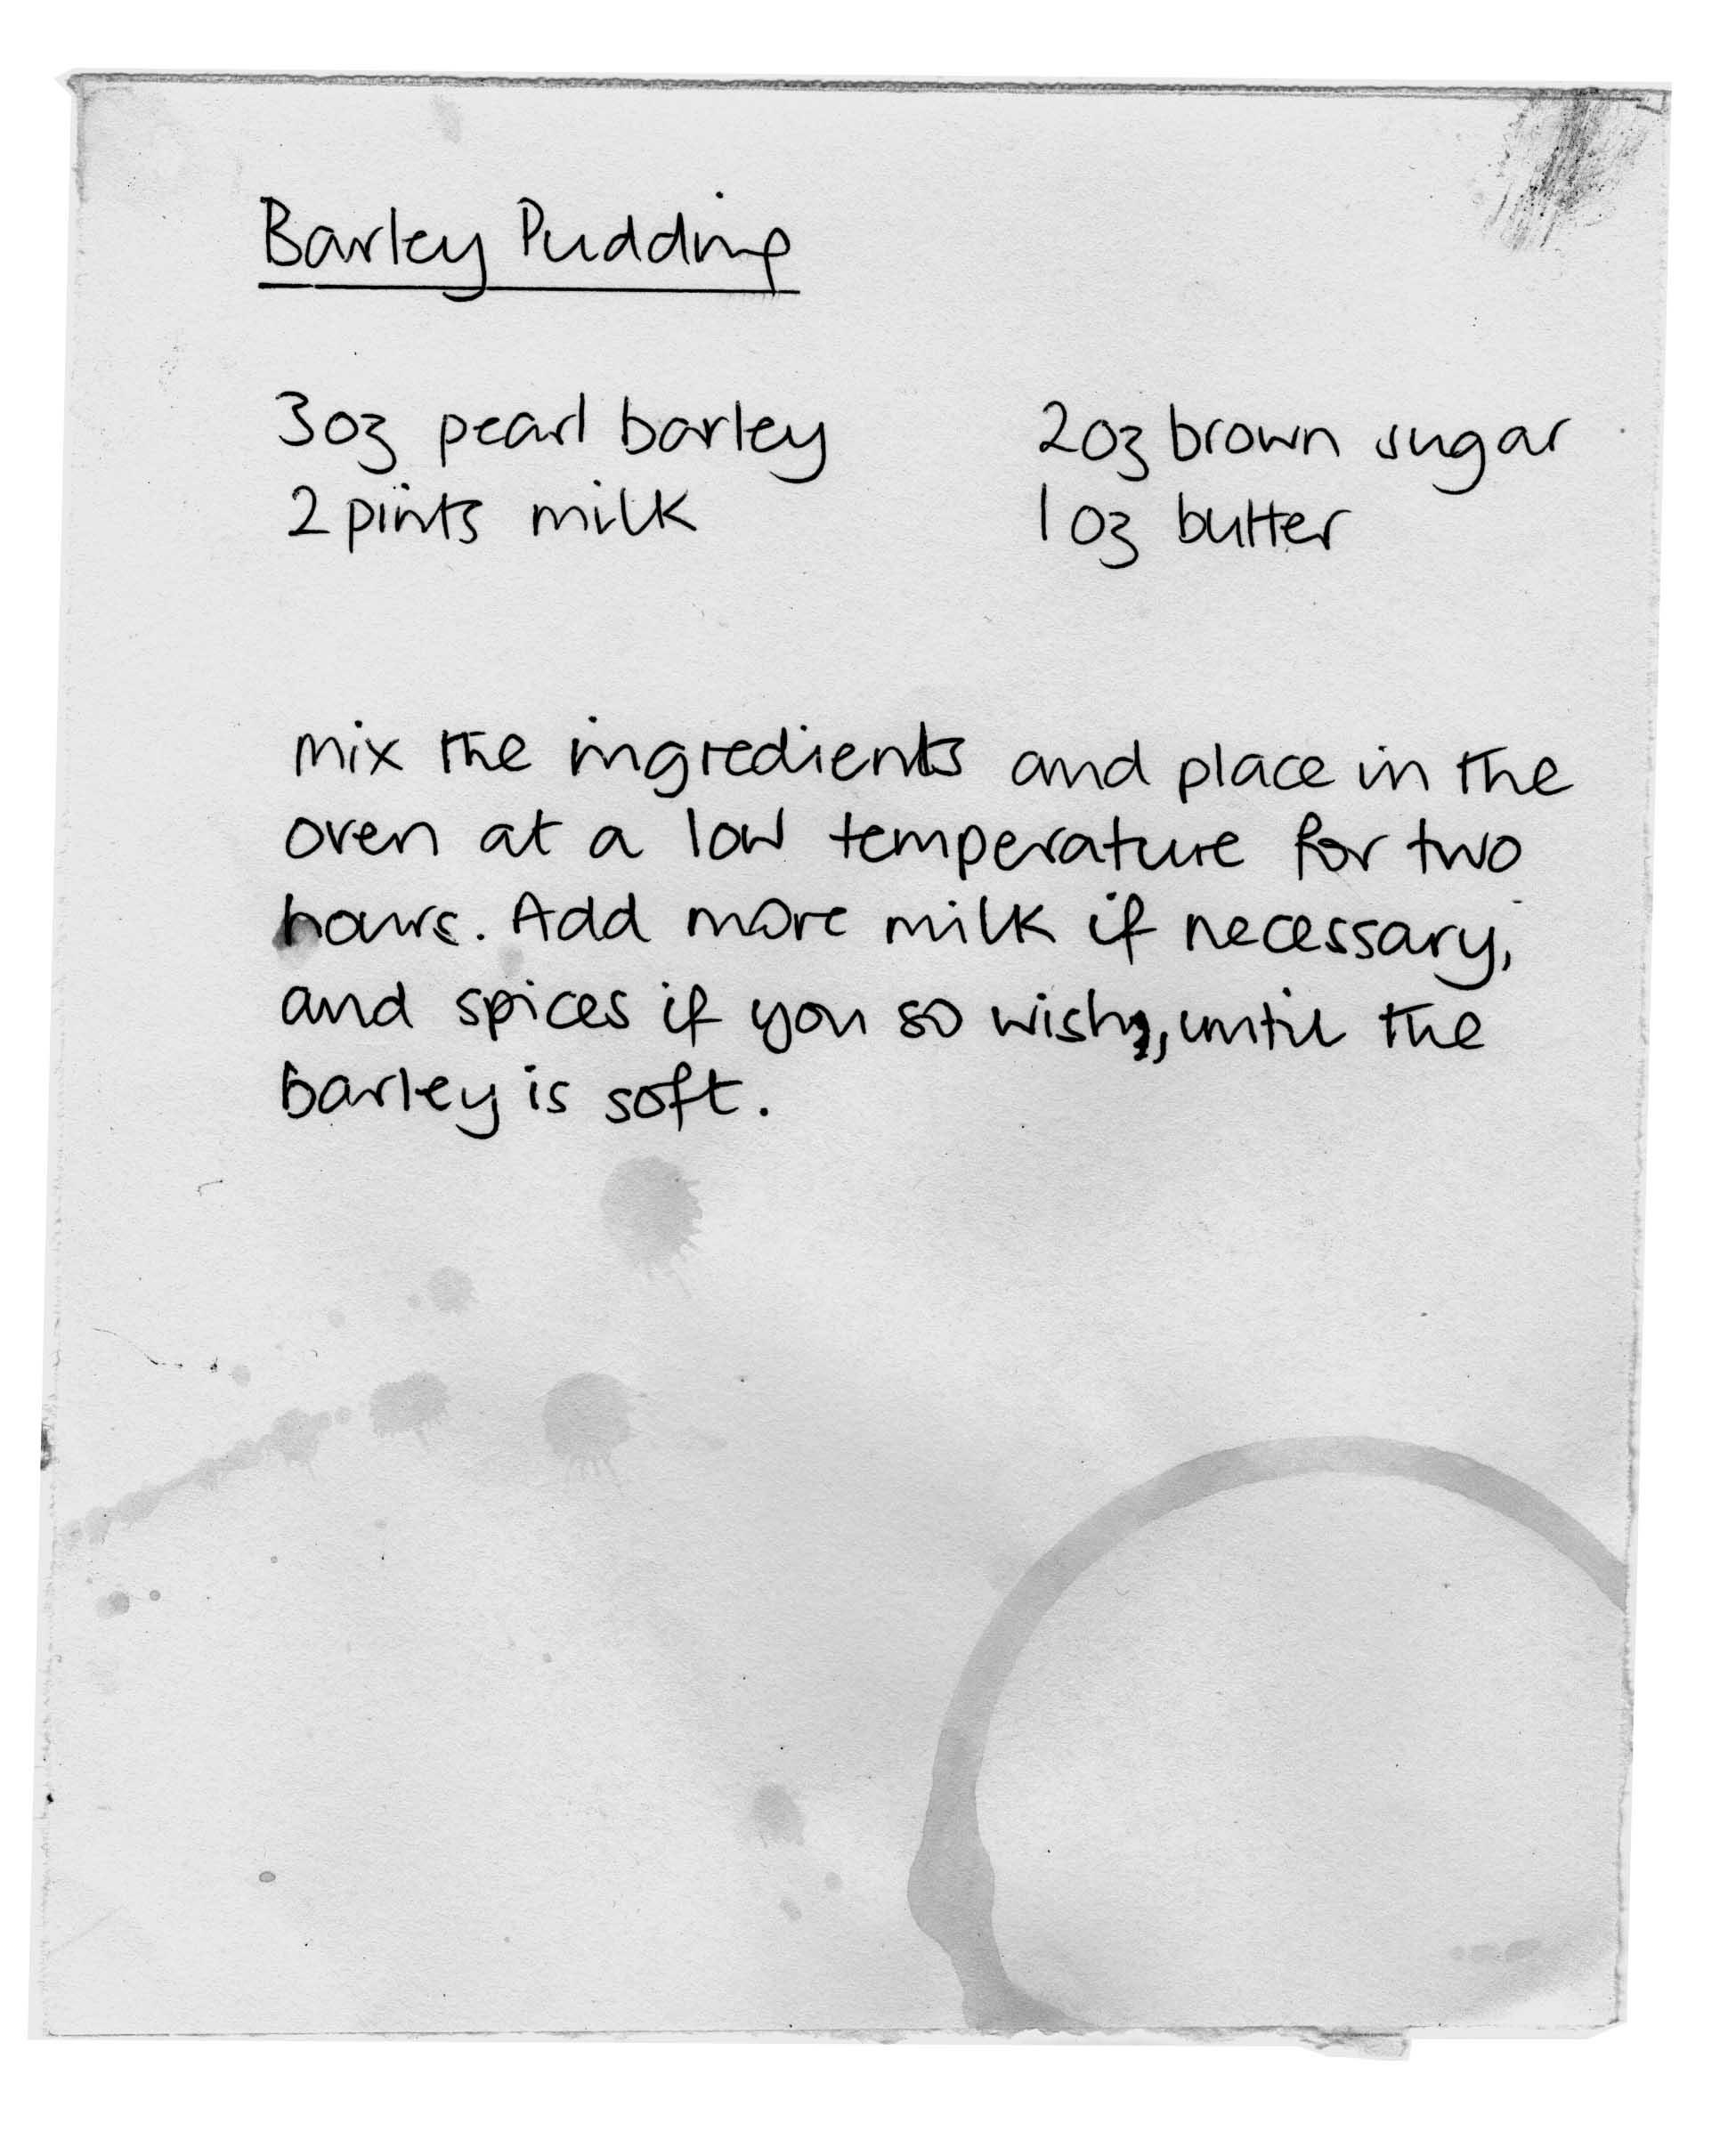 Barley Pudding
3oz pearl barley
2 pints milk
2oz brown sugar
1oz butter
mix the ingredients and place in the
oven at a low temperature for two
hours. Add more milk if necessary,
and spices if you so wish, until the
barley is soft.